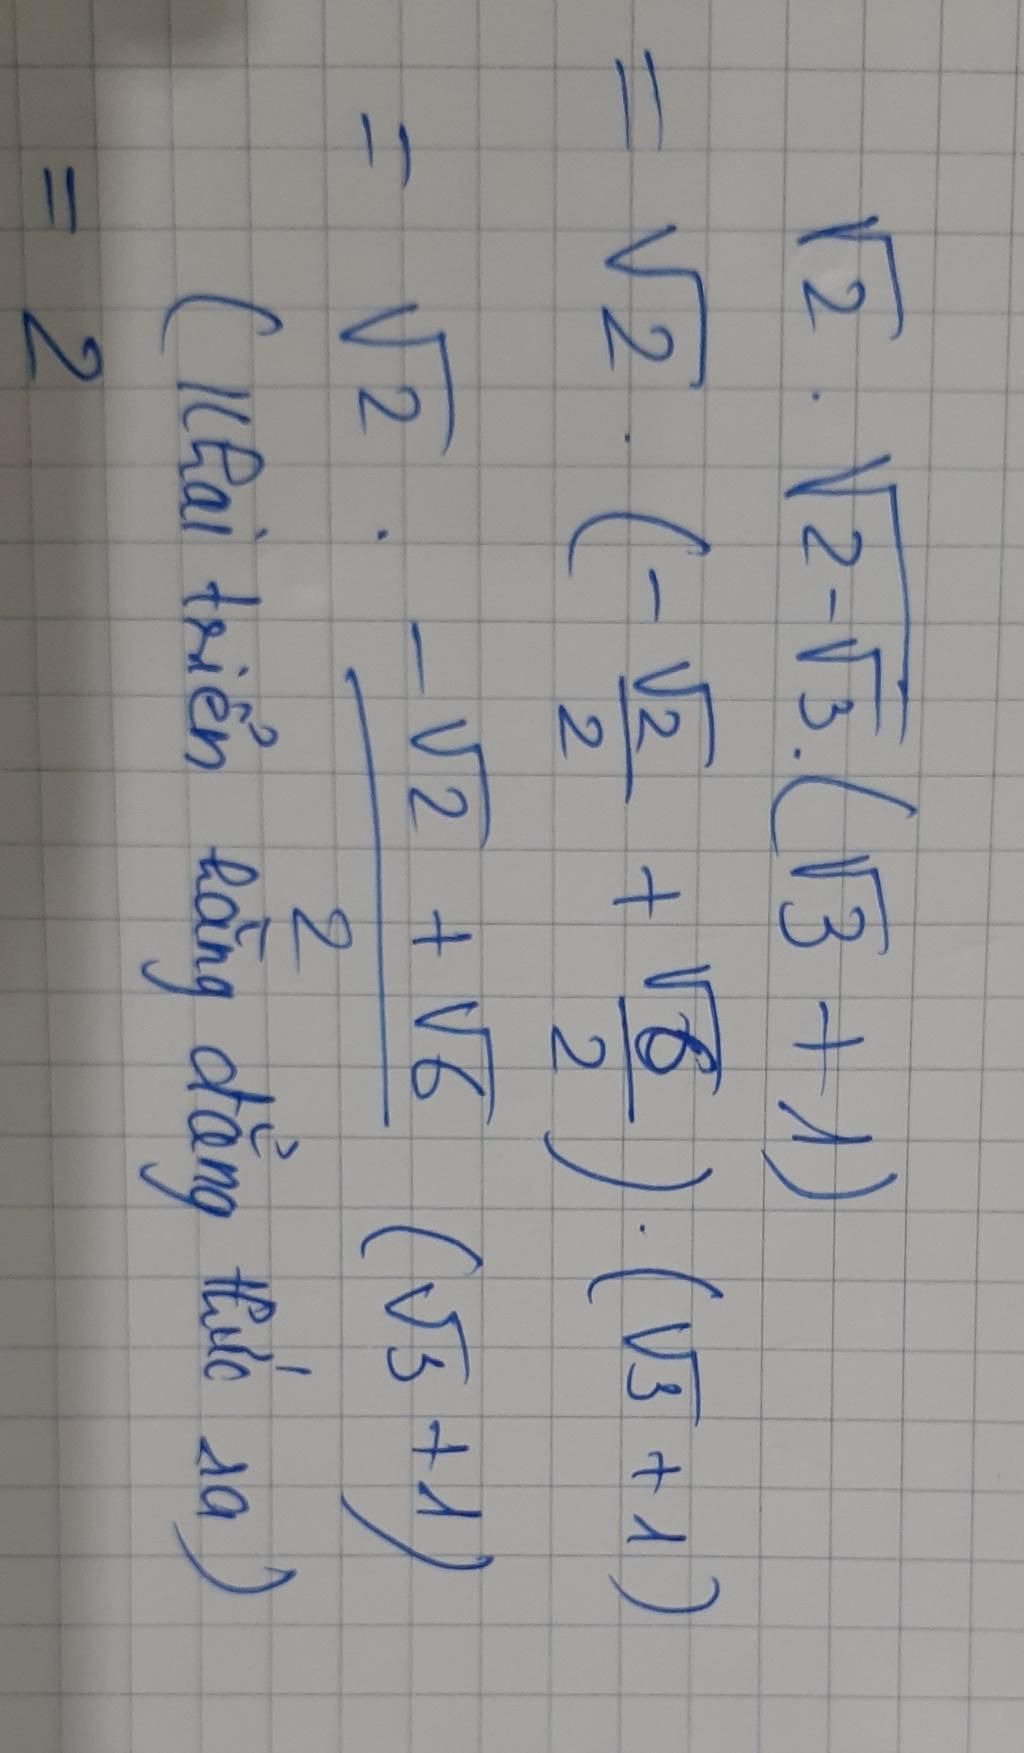 √2 . √(2-√3) . (√3 + 1)
= √2 . (-√2/2 + √6/2) . (√3 + 1)
= √2 . (-√2 + √6)/2 (√3 + 1)
(Khai triển hằng đẳng thức ra)
= 2